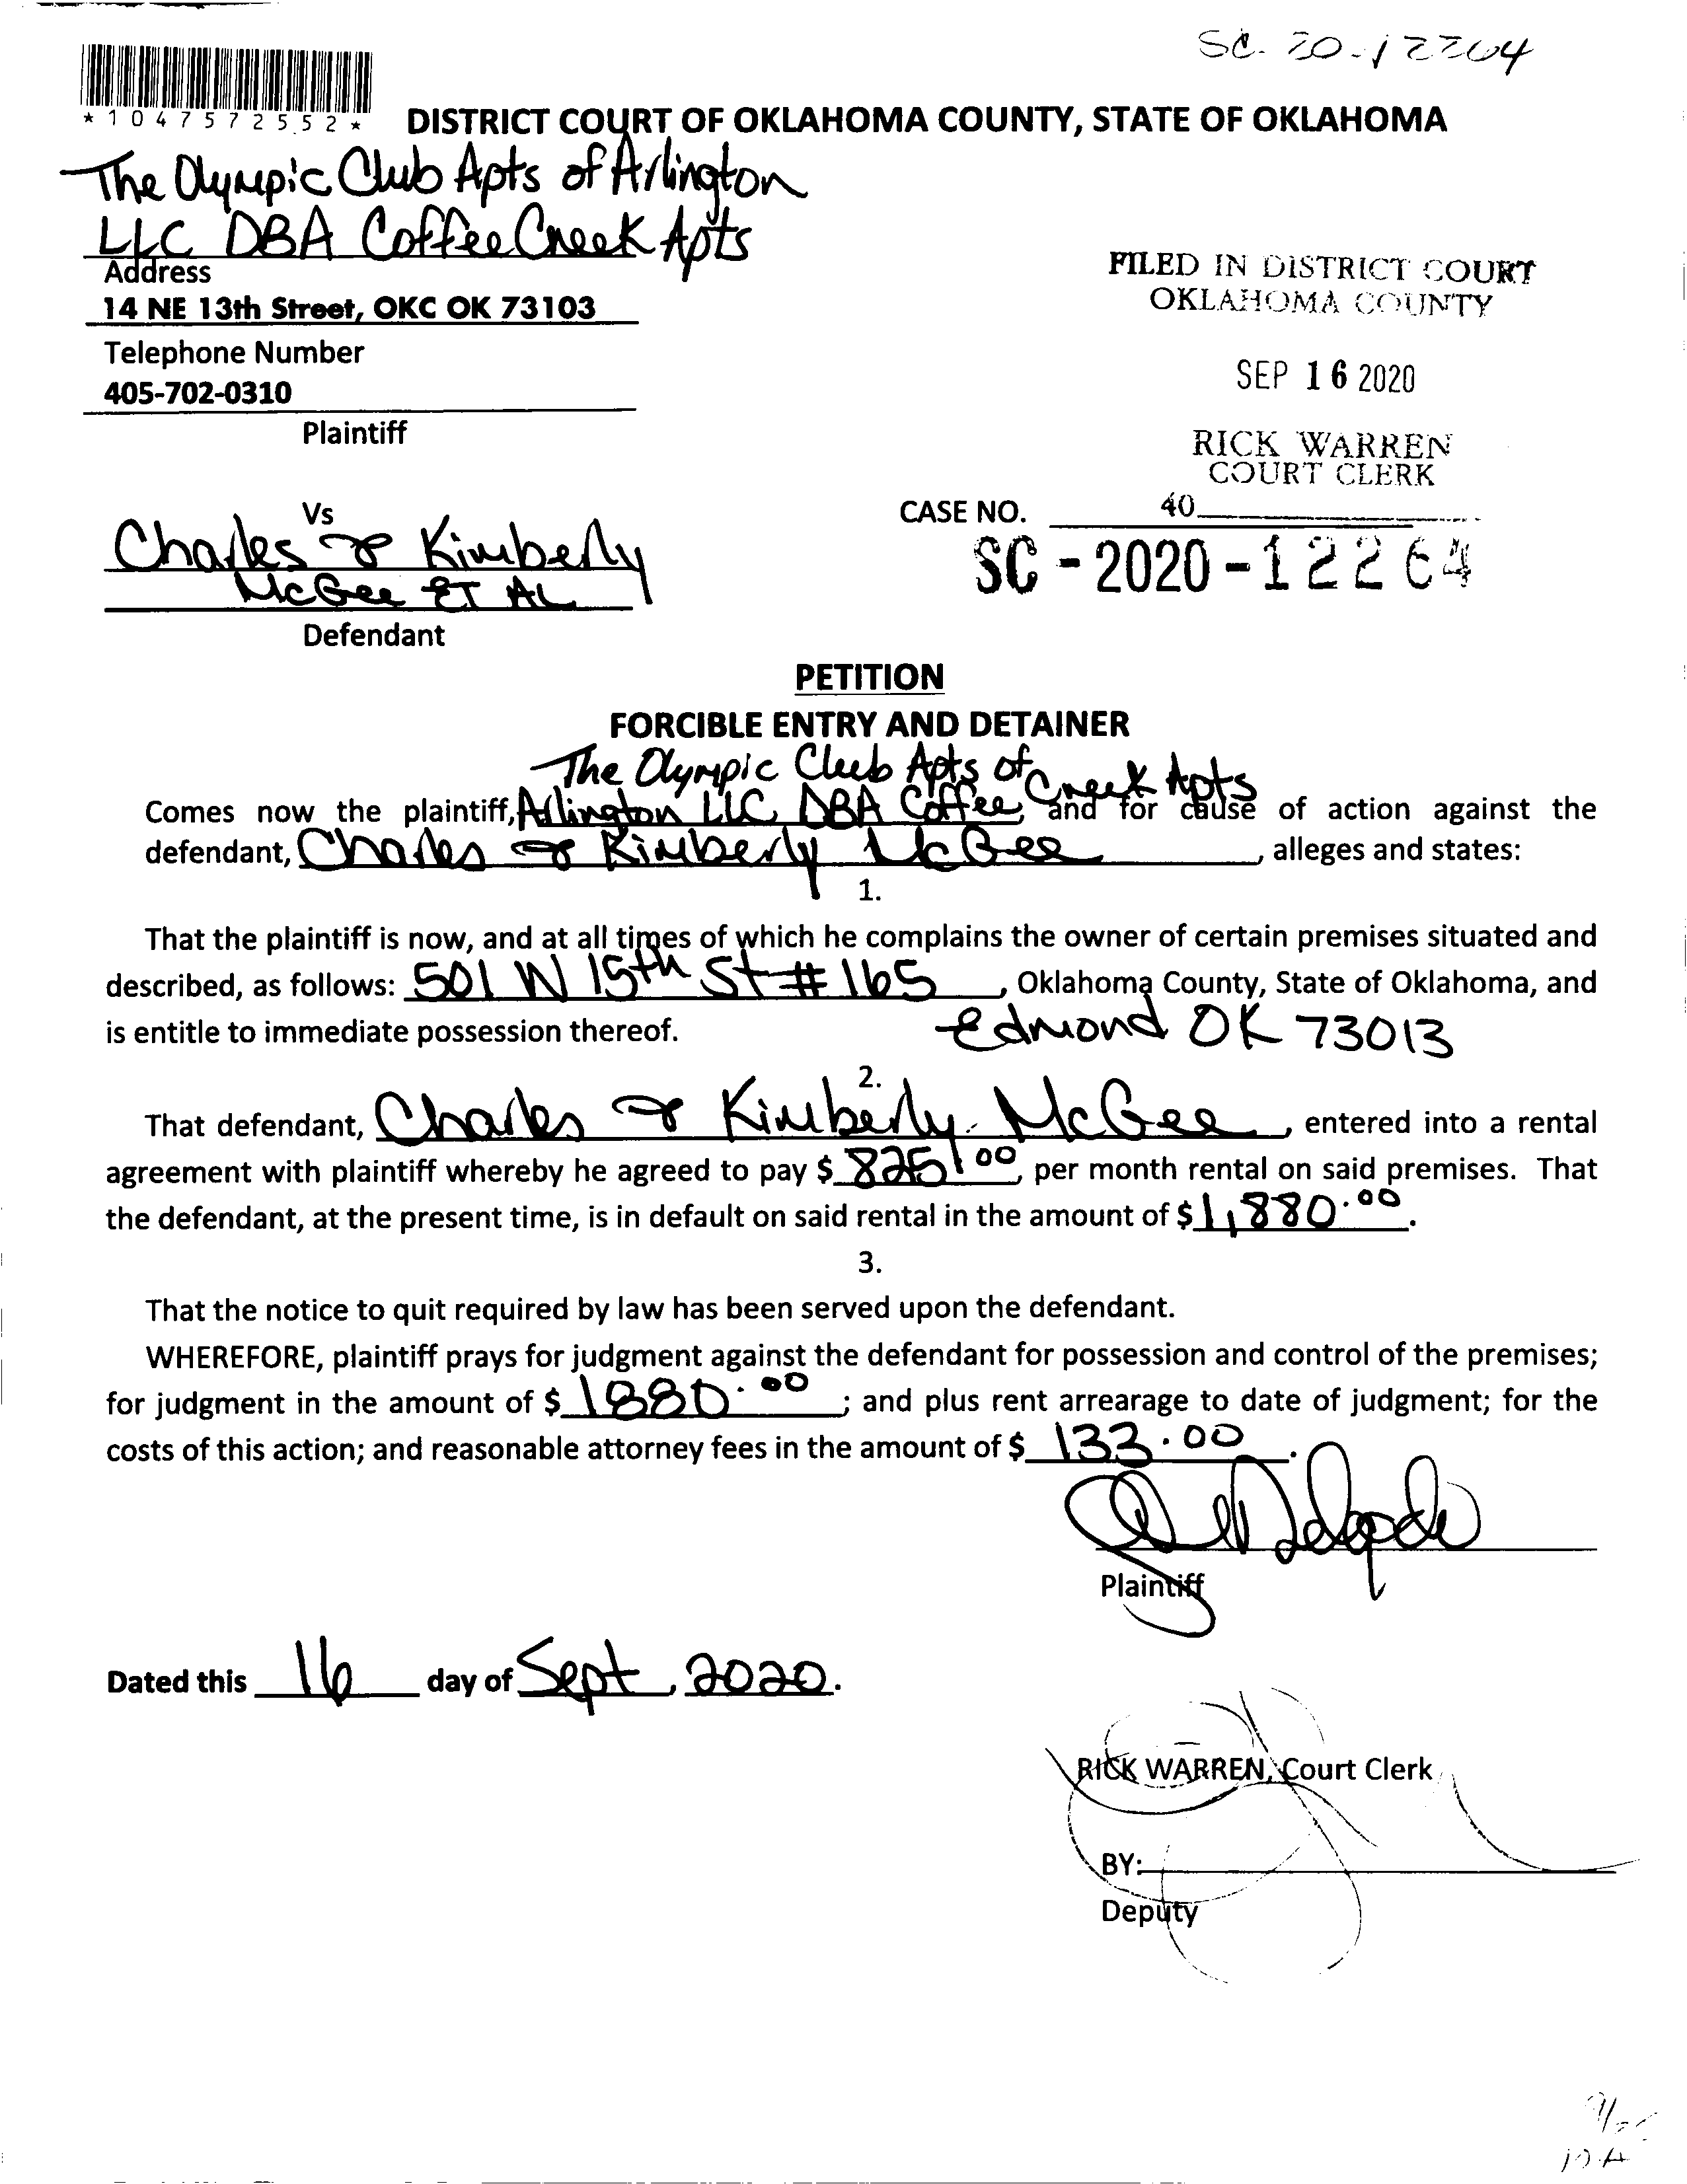 SC-20-12264
* 1 0 4 7 5 7 2 5 5 2 *
DISTRICT COURT OF OKLAHOMA COUNTY, STATE OF OKLAHOMA
The Olympic Club Apts of Arlington
LLC DBA Coffee Creek Apts
Address
14 NE 13th Street, OKC OK 73103
Telephone Number
405-702-0310
Plaintiff
FILED IN DISTRICT COURT
OKLAHOMA COUNTY
SEP 16 2020
RICK WARREN
COURT CLERK
40
Vs
CASE NO.
SC - 2020 - 12264
Charles & Kimberly
McGee ET AL
Defendant
PETITION
FORCIBLE ENTRY AND DETAINER
The Olympic Club Apts of
Comes now the plaintiff, Arlington LLC DBA Coffee Creek Apts and for cause of action against the
defendant, Charles & Kimberly McGee, alleges and states:
1.
That the plaintiff is now, and at all times of which he complains the owner of certain premises situated and
described, as follows: 501 W 15th St # 165, Oklahoma County, State of Oklahoma, and
is entitle to immediate possession thereof. Edmond OK 73013
2.
That defendant, Charles & Kimberly McGee, entered into a rental
agreement with plaintiff whereby he agreed to pay $ 825.00, per month rental on said premises. That
the defendant, at the present time, is in default on said rental in the amount of $ 1,880.00.
3.
That the notice to quit required by law has been served upon the defendant.
WHEREFORE, plaintiff prays for judgment against the defendant for possession and control of the premises;
for judgment in the amount of $ 1880.00; and plus rent arrearage to date of judgment; for the
costs of this action; and reasonable attorney fees in the amount of $ 133.00.
Plaintiff
Dated this 16 day of Sept, 2020.
RICK WARREN, Court Clerk
BY:
Deputy